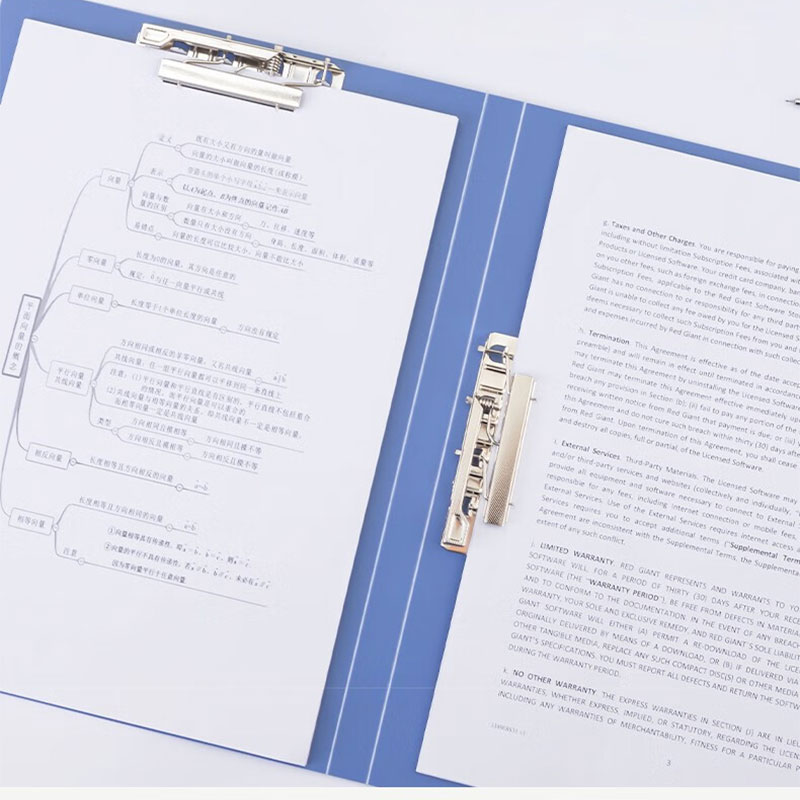 平面向量的概念
向量
定义
既有大小又有方向的量叫做向量
向量的大小叫做向量的长度（或称模）
表示
以A为起点，B为终点的向量记作AB
向量与数量的区别
向量有大小和方向
力，位移，速度等
数量只有大小没有方向
身高，长度，面积，体积，质量等
易错点
向量的长度可以比较大小，向量不能比大小
零向量
长度为0的向量，其方向是任意的
规定，0与任一向量平行或共线
单位向量
长度等于1个单位长度的向量
方向没有规定
平行向量
共线向量
方向相同或相反的非零向量，又名共线向量
a∥b
共线向量，任一组平行向量都可以平移到同一条直线上
类型
方向相同且模相等
方向相同且模不等
方向相反且模相等
方向相反且模不等
相反向量
长度相等且方向相反的向量
相等向量
长度相等且方向相同的向量
a=b
注意
因为零向量平行于任意向量
g. Taxes and Other Charges. You are responsible for paying
including without limitation Subscription Fees, associated wi
Products or Licensed Software. Your credit card company, ban
on you other fees, such as foreign exchange fees, in connection
Subscription Fees, applicable to the Red Giant Software Sto
Giant has no connection to or responsibility for any third part
Giant is unable to collect any fee owed by you for the Licensed S
deems necessary to collect such Subscription Fees from you and
and expenses incurred by Red Giant in connection with such collec
h. Termination. This Agreement is effective as of the date accep
preamble) and will remain in effect until terminated in accordanc
may terminate this Agreement by uninstalling the Licensed Softwa
Red Giant may terminate this Agreement effective immediately up
breach any provision in Section (b); (ii) fail to pay any portion of the
receiving written notice from Red Giant that payment is due; or (iii)
this Agreement and do not cure such breach within thirty (30) days afte
from Red Giant. Upon termination of this Agreement, you shall cease
and destroy all copies, full or partial, of the Licensed Software.
i. External Services. Third-Party Materials. The Licensed Software may
and/or third-party services and websites (collectively and individually, "
provide all equipment and software necessary to connect to External
responsible for any fees, including Internet connection or mobile fees,
External Services. Use of the External Services requires Internet access a
Services requires you to accept additional terms ("Supplemental Term
Agreement are inconsistent with the Supplemental Terms, the Supplementa
extent of any such conflict.
j. LIMITED WARRANTY. RED GIANT REPRESENTS AND WARRANTS TO YO
SOFTWARE WILL, FOR A PERIOD OF THIRTY (30) DAYS AFTER YOUR RECE
SOFTWARE (THE "WARRANTY PERIOD"), BE FREE FROM DEFECTS IN MATERIA
AND TO CONFORM TO THE DOCUMENTATION. IN THE EVENT OF ANY BREACH
WARRANTY, YOUR SOLE AND EXCLUSIVE REMEDY, AND RED GIANT'S SOLE LIABILIT
GIANT SOFTWARE WILL EITHER (A) PERMIT A RE-DOWNLOAD OF THE LICE
ORIGINALLY DELIVERED BY MEANS OF A DOWNLOAD, OR (B) IF DELIVERED VIA
OTHER TANGIBLE MEDIA, REPLACE ANY SUCH COMPACT DISC(S) OR OTHER MEDIA
GIANT'S SPECIFICATIONS. YOU MUST REPORT ALL DEFECTS AND RETURN THE SOFTW
DURING THE WARRANTY PERIOD.
k. NO OTHER WARRANTY. THE EXPRESS WARRANTIES IN SECTION (J) ARE IN LIEU
WARRANTIES, WHETHER EXPRESS, IMPLIED, OR STATUTORY, REGARDING THE LICEN
INCLUDING ANY WARRANTIES OF MERCHANTABILITY, FITNESS FOR A PARTICULAR P
3